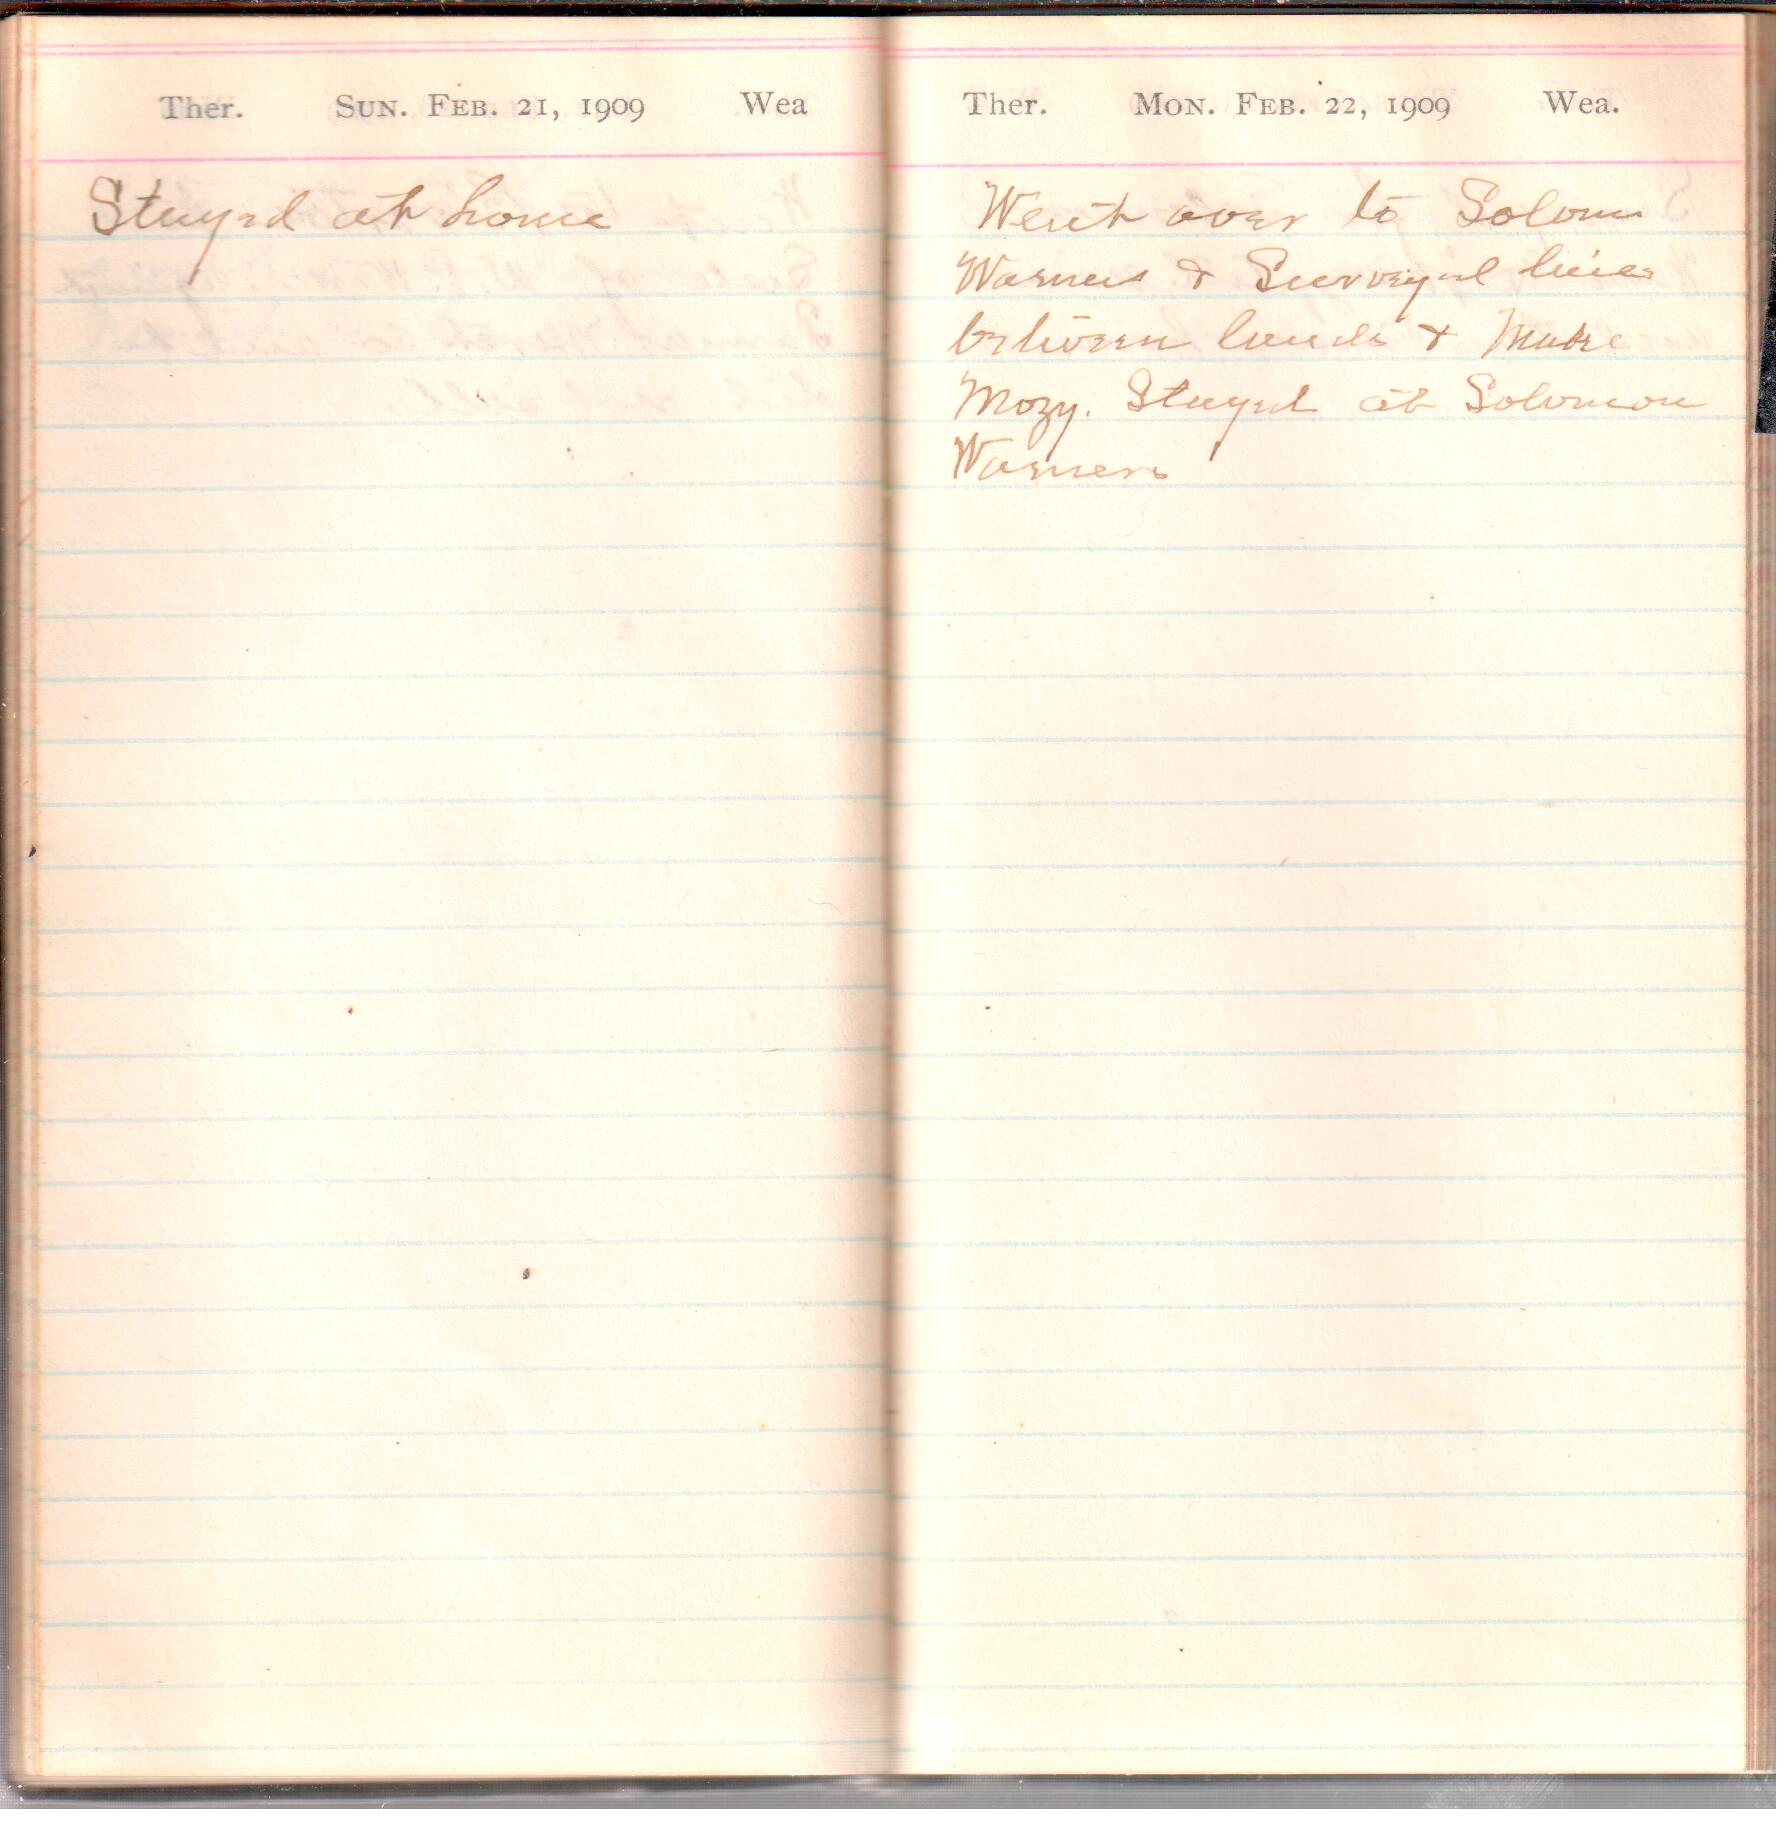 Ther. SUN. FEB. 21, 1909 Wea
Stayed at home
Ther. MON. FEB. 22, 1909 Wea.
Went over to Solomon
Warners & Surveyed line
between lands &
Mozy. Stayed at Solomon
Warners